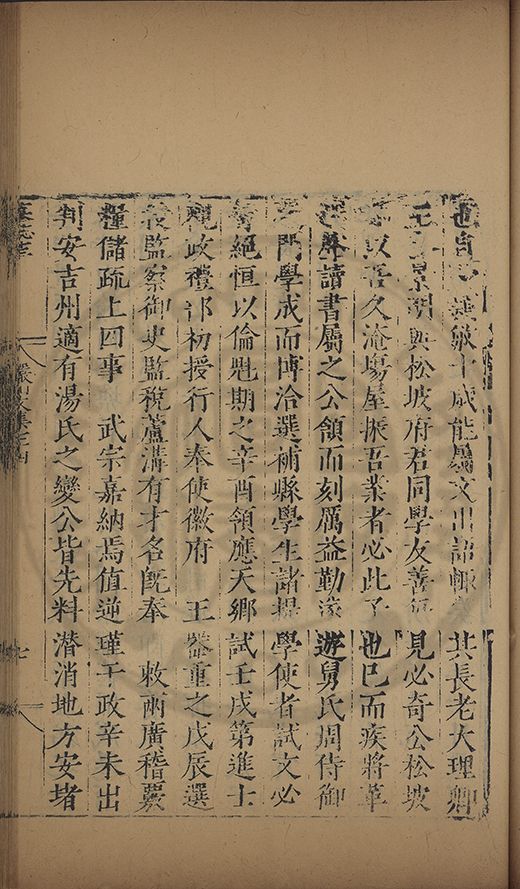 也自㓜警敏十歲能屬文出語輒 其長老大理卿
王 景明與松坡府君同學友善 見必奇公松坡
 故吾久淹場屋振吾業者必此子也已而疾將革
 讀書屬之公領而刻厲益勤遂遊舅氏周侍御
 門學成而博洽選補縣學生諸提學使者試文必
 絕恒以倫魁期之辛酉領應天鄉試壬戌第進士
觀政禮部初授行人奉使徽府 王器重之戊辰選
 監察御史監稅蘆溝有才名既奉 敕兩廣稽覈
糧儲疏上四事 武宗嘉納焉值逆瑾干政辛未出
判安吉州適有湯氏之變公皆先料潛消地方安堵
七